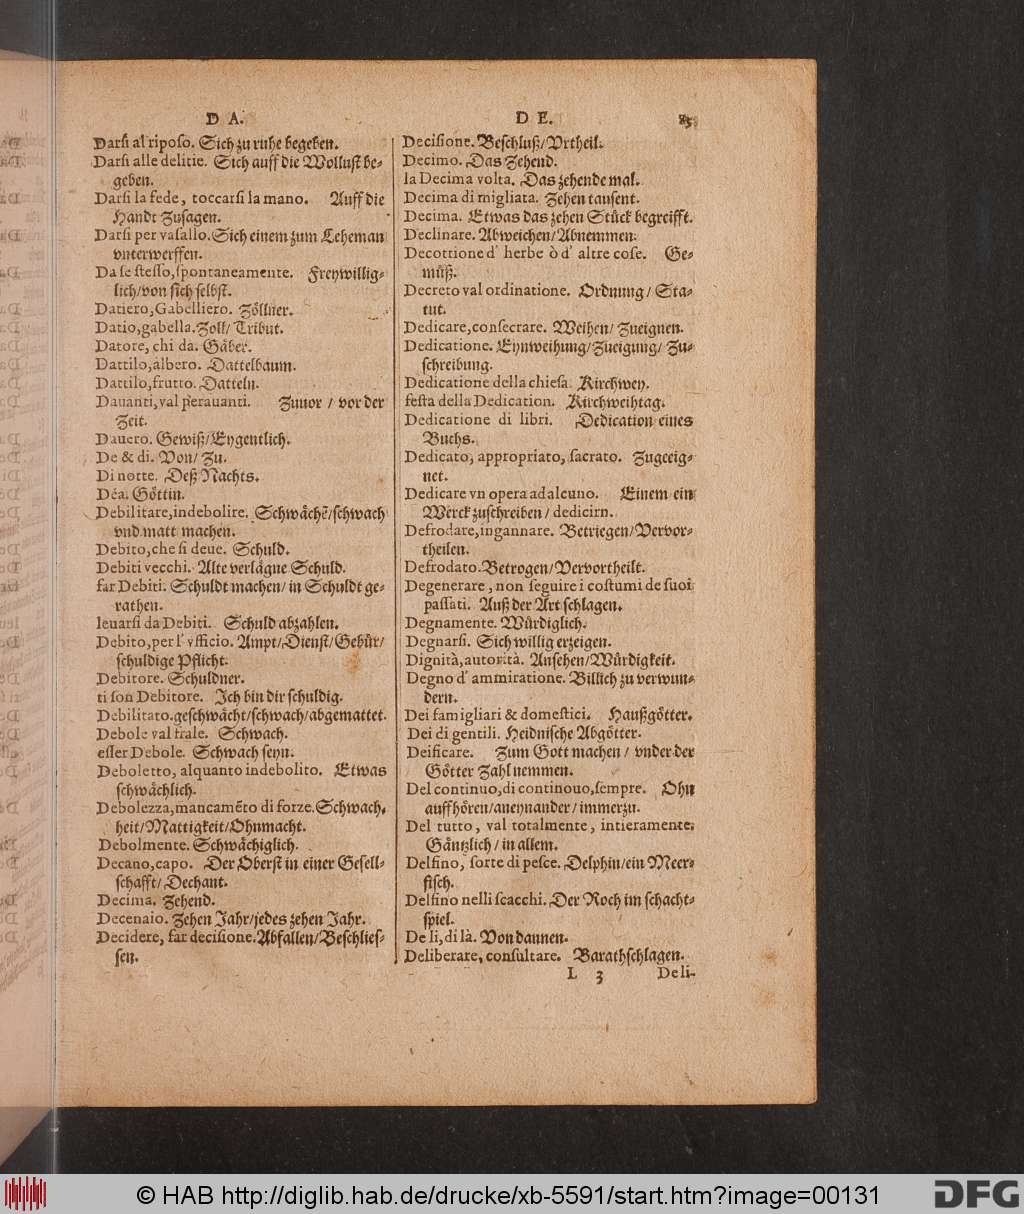 D A.
Darſi al ripoſo. Sich zu ruhe begeben.
Darſi alle delitie. Sich auff die Wolluſt be-
geben.
Darſi la fede, toccarſi la mano. Auff die
Handt Zuſagen.
Darſi per vaſallo. Sich einem zum Leheman
vnterwerffen.
Da ſe ſteſſo, ſpontaneamente. Freywillig-
lich/von ſich ſelbſt.
Datiero, Gabelliero. Zöllner.
Datio, gabella. Zoll/ Tribut.
Datore, chi da. Gäber.
Dattilo, albero. Dattelbaum.
Dattilo, frutto. Datteln.
Dauanti, val perauanti. Zuuor / vor der
Zeit.
Dauero. Gewiß/Eygentlich.
De & di. Von/ Zu.
Di notte. Deß Nachts.
Déa. Göttin.
Debilitare, indebolire. Schwächẽ/ſchwach
vnd matt machen.
Debito, che ſi deue. Schuld.
Debiti vecchi. Alte verlägne Schuld.
far Debiti. Schuldt machen/ in Schuldt ge-
rathen.
leuarſi da Debiti. Schuld abzahlen.
Debito, per l' vfficio. Ampt/Dienſt/Gebür/
ſchuldige Pflicht.
Debitore. Schuldner.
ti ſon Debitore. Ich bin dir ſchuldig.
Debilitato. geſchwächt/ſchwach/abgemattet.
Debole val frale. Schwach.
eſſer Debole. Schwach ſeyn.
Deboletto, alquanto indebolito. Etwas
ſchwächlich.
Debolezza, mancamẽto di forze. Schwach-
heit/Mattigkeit/Ohnmacht.
Debolmente. Schwächiglich.
Decano, capo. Der Oberſt in einer Geſell-
ſchafft/ Dechant.
Decima. Zehend.
Decenaio. Zehen Jahr/jedes zehen Jahr.
Decidere, far deciſione. Abfallen/Beſchlieſ-
ſen.
D E.
Deciſione. Beſchluß/Vrtheil.
Decimo. Das Zehend.
la Decima volta. Das zehende mal.
Decima di migliata. Zehen tauſent.
Decima. Etwas das zehen Stück begreifft.
Declinare. Abweichen/Abnemmen.
Decottione d' herbe ò d' altre coſe. Ge-
müß.
Decreto val ordinatione. Ordnung/ Sta-
tut.
Dedicare, conſecrare. Weihen/ Zueignen.
Dedicatione. Eynweihung/Zueigung/ Zu-
ſchreibung.
Dedicatione della chieſa. Kirchwey.
feſta della Dedication. Kirchweihtag.
Dedicatione di libri. Dedication eines
Buchs.
Dedicato, appropriato, ſacrato. Zugeeig-
net.
Dedicare vn opera ad alcuno. Einem ein
Werck zuſchreiben / dedicirn.
Defrodare, ingannare. Betriegen/Vervor-
theilen.
Defrodato. Betrogen/Vervortheilt.
Degenerare, non ſeguire i coſtumi de ſuoi
paſſati. Auß der Art ſchlagen.
Degnamente. Würdiglich.
Degnarſi. Sich willig erzeigen.
Dignità, autorità. Anſehen/Würdigkeit.
Degno d' ammiratione. Billich zu verwun-
dern.
Dei famigliari & domeſtici. Haußgötter.
Dei di gentili. Heidniſche Abgötter.
Deificare. Zum Gott machen / vnder der
Götter Zahl nemmen.
Del continuo, di continouo, ſempre. Ohn
auffhören/aneynander / immerzu.
Del tutto, val totalmente, intieramente.
Gäntzlich / in allem.
Delfino, ſorte di peſce. Delphin/ein Meer-
fiſch.
Delfino nelli ſcacchi. Der Roch im ſchacht-
ſpiel.
De li, di là. Von dannen.
Deliberare, conſultare. Barathſchlagen.
L 3 Deli-
© HAB http://diglib.hab.de/drucke/xb-5591/start.htm?image=00131
DFG